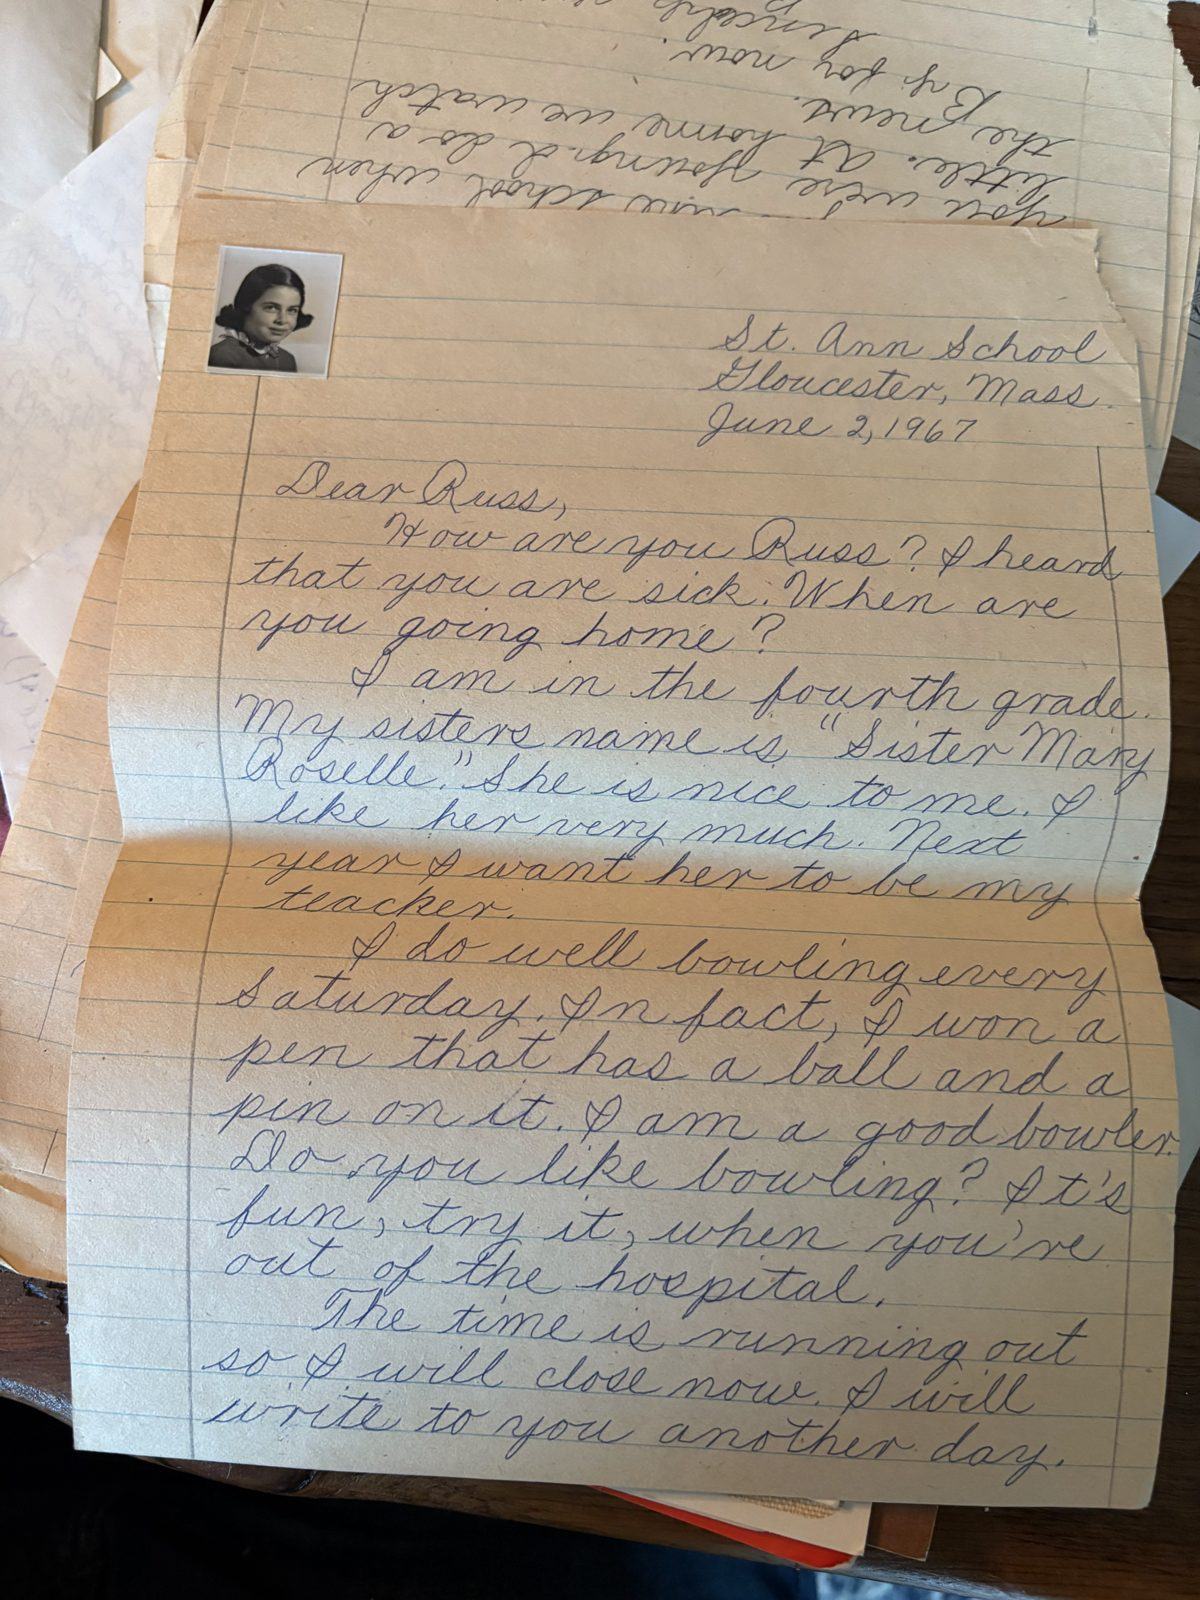 you were young. I do a
little. At home we watch
the news.
By for now.
St. Ann School
Gloucester, Mass.
June 2, 1967
Dear Russ,
How are you Russ? I heard
that you are sick. When are
you going home?
I am in the fourth grade.
My sisters name is "Sister Mary
Roselle." She is nice to me. I
like her very much. Next
year I want her to be my
teacher.
I do well bowling every
Saturday. In fact, I won a
pen that has a ball and a
pin on it. I am a good bowler.
Do you like bowling? It's
fun, try it, when you're
out of the hospital.
The time is running out
so I will close now. I will
write to you another day.